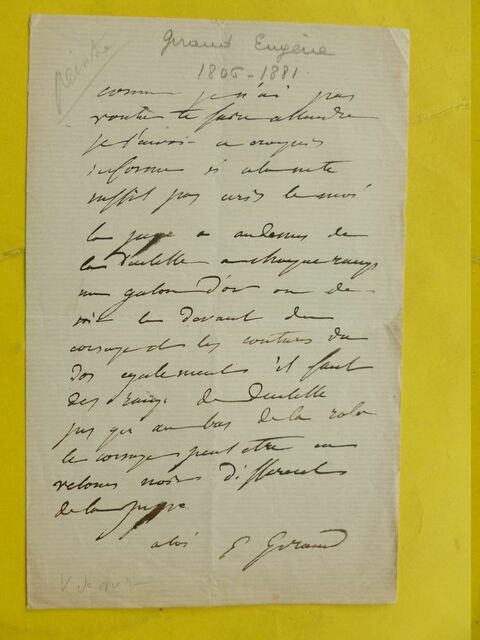 peintre
Giraud Eugène
1806-1881.
comme je n'ai pas
voulu te faire attendre
je t'envoie ce croquis
informe si cela ne te
suffit pas ecris le moi
la jupe a au dessus de
la dentelle a chaque rang
un galon d'or ou de
le devant du
corsage et les coutures du
dos egalement il faut
des rangs de dentelle
jus qu au bas de la robe
le corsage peut etre en
velours noir different
de la juppe
a toi E Giraud